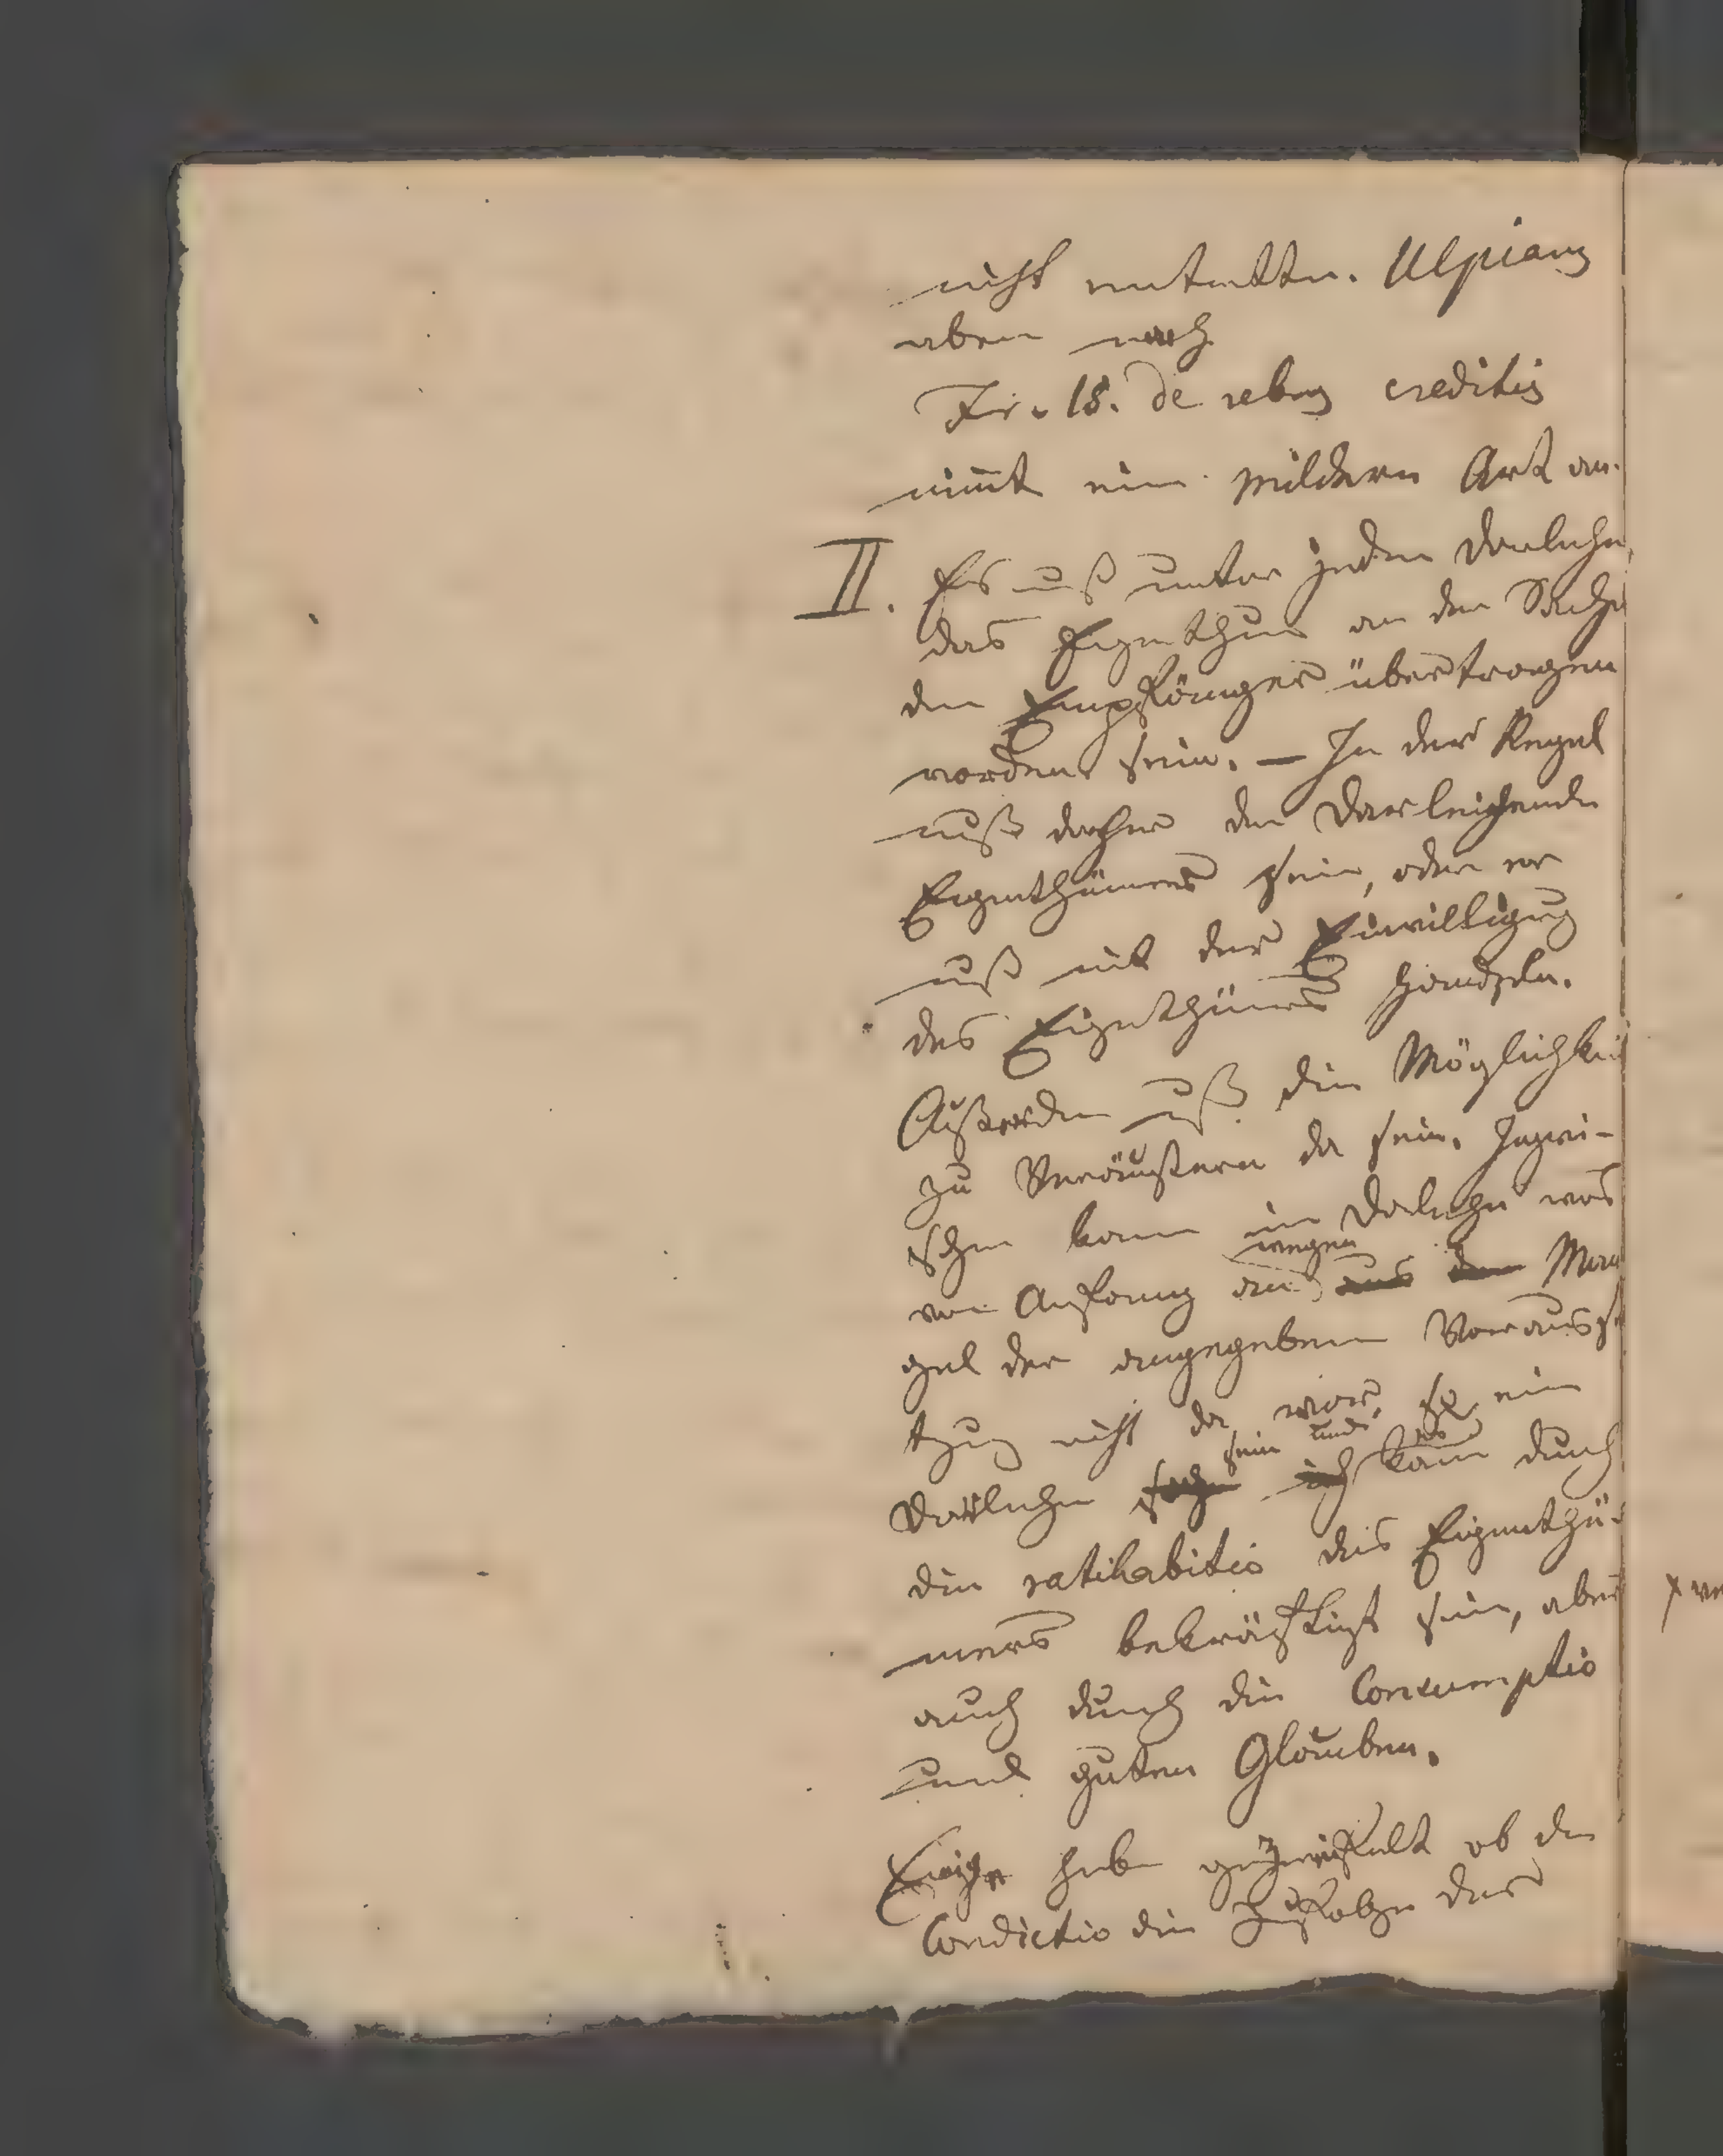 nicht eintritt. Ulpianus
aber nach
Fr. 18. de rebus creditis
nimt eine mildere Art an.
II. Es muß unter jeden Darlehn,
das Eigenthum an den Sachen
den Empfänger übertragen
worden sein. — In der Regel
muß daher der Darleihende
Eigenthümer sein, oder er
muß mit der Einwilligung
des Eigenthümers handeln.
Außerdem muß die Möglichkeit
zu Veräußern da sein. Inzwi-
schen kann ein Darlehn was
von Anfang an wegen Man
gel der angegebenen Vorausse
tzung nicht da war, so ein
Darlehn sein und kann durch
die ratihabitio des Eigenthü-
mers bekräftigt sein, aber
auch durch die Consumptio
und guten Glauben.
Einige haben gezweifelt ob die
Condictio die Zufolge der